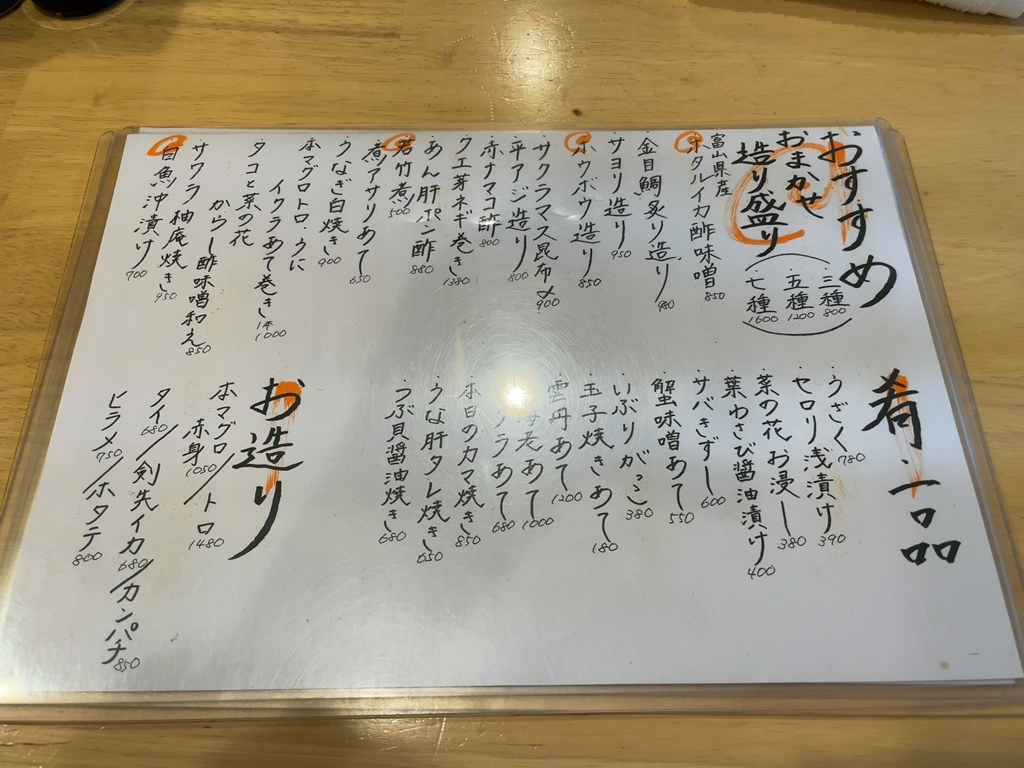 おすすめ
おまかせ
造り盛り
三種 800
五種 1200
七種 1600
富山県産
・ホタルイカ酢味噌 850
・金目鯛炙り造り 980
・サヨリ造り 950
・ホウボウ造り 850
・サクラマス昆布〆 900
・平アジ造り 800
・赤ナマコ酢 800
・クエ芽ネギ巻き 1380
・あん肝ポン酢 880
・若竹煮 500
・煮アサリあて 650
・うなぎ白焼き 900
・本マグロトロ・うに
イクラあて巻き 1本1000
・タコと菜の花
からし酢味噌和え 850
・サワラ柚庵焼き 950
・白魚沖漬け 700
肴・一品
・うざく 780
・セロリ浅漬け 390
・菜の花お浸し 380
・葉わさび醤油漬け 400
・サバきずし 600
・蟹味噌あて 550
・いぶりがっこ 380
・玉子焼きあて 180
・雲丹あて 1200
あて 1000
あて 680
・本日のカマ焼き 850
・うな肝タレ焼き 650
・つぶ貝醤油焼き 680
お造り
本マグロ/トロ 1480
赤身 1050
タイ/剣先イカ/カンパチ
680 680 850
ヒラメ/ホタテ
750 800